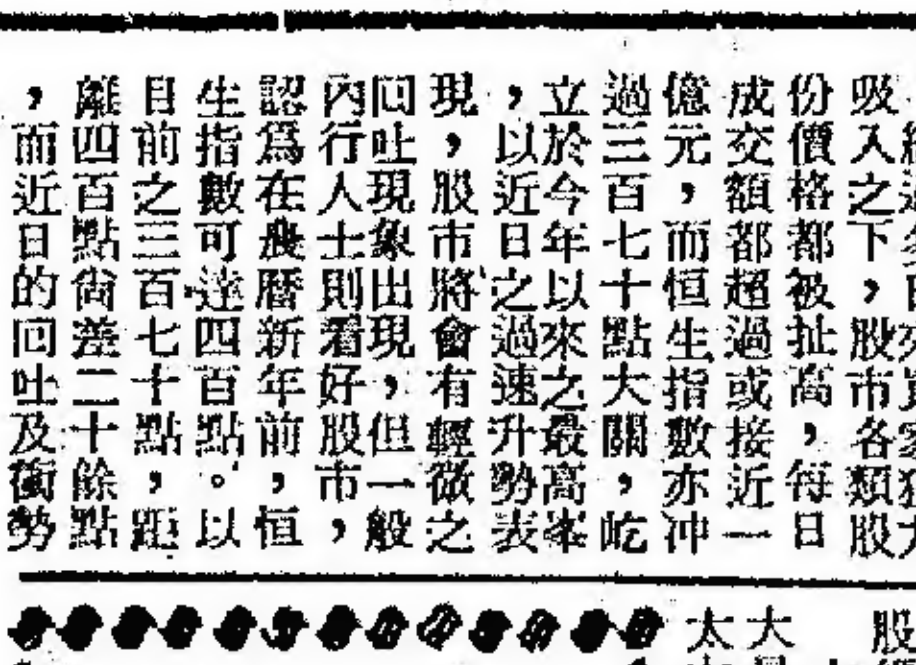 吸入之下，股市各類股
份價格都被扯高，每日
成交額都超過或接近一
億元，而恒生指數亦冲
過三百七十點大關，屹
立於今年以來之最高峯
，以近日之過速升勢表
現，股市將會有輕微之
回吐現象出現，但一般
內行人士則看好股市，
認爲在農曆新年前，恒
生指數可達四百點。以
目前之三百七十點，距
離四百點尙差二十餘點
，而近日的回吐及衝勢
股
大
太